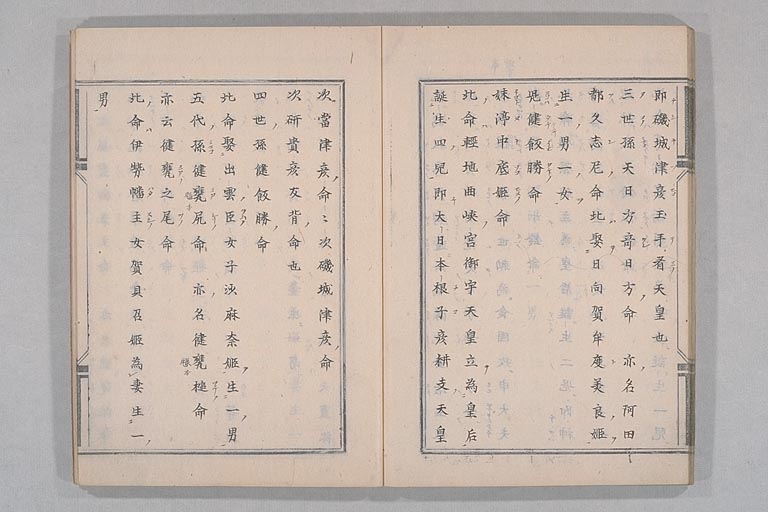 即磯城津彦玉手看天皇也
三世孫天日方奇日方命 亦名阿田
都久志尼命此娶日向賀牟度美良姫
生一男一女
児健飯勝命
妹渟中底姫命
此命軽地曲峡宮御宇天皇立為皇后
誕生四児即大日本根子彦耕支天皇
次當津彦命〻次磯城津彦命
次研貴彦友背命也
四世孫健飯勝命
此命娶出雲臣女子沙麻奈姫生一男
五代孫健甕尻命 亦名健甕槌命
亦云健甕之尾命
此命伊勢幡主女賀具呂姫為妻生一
男